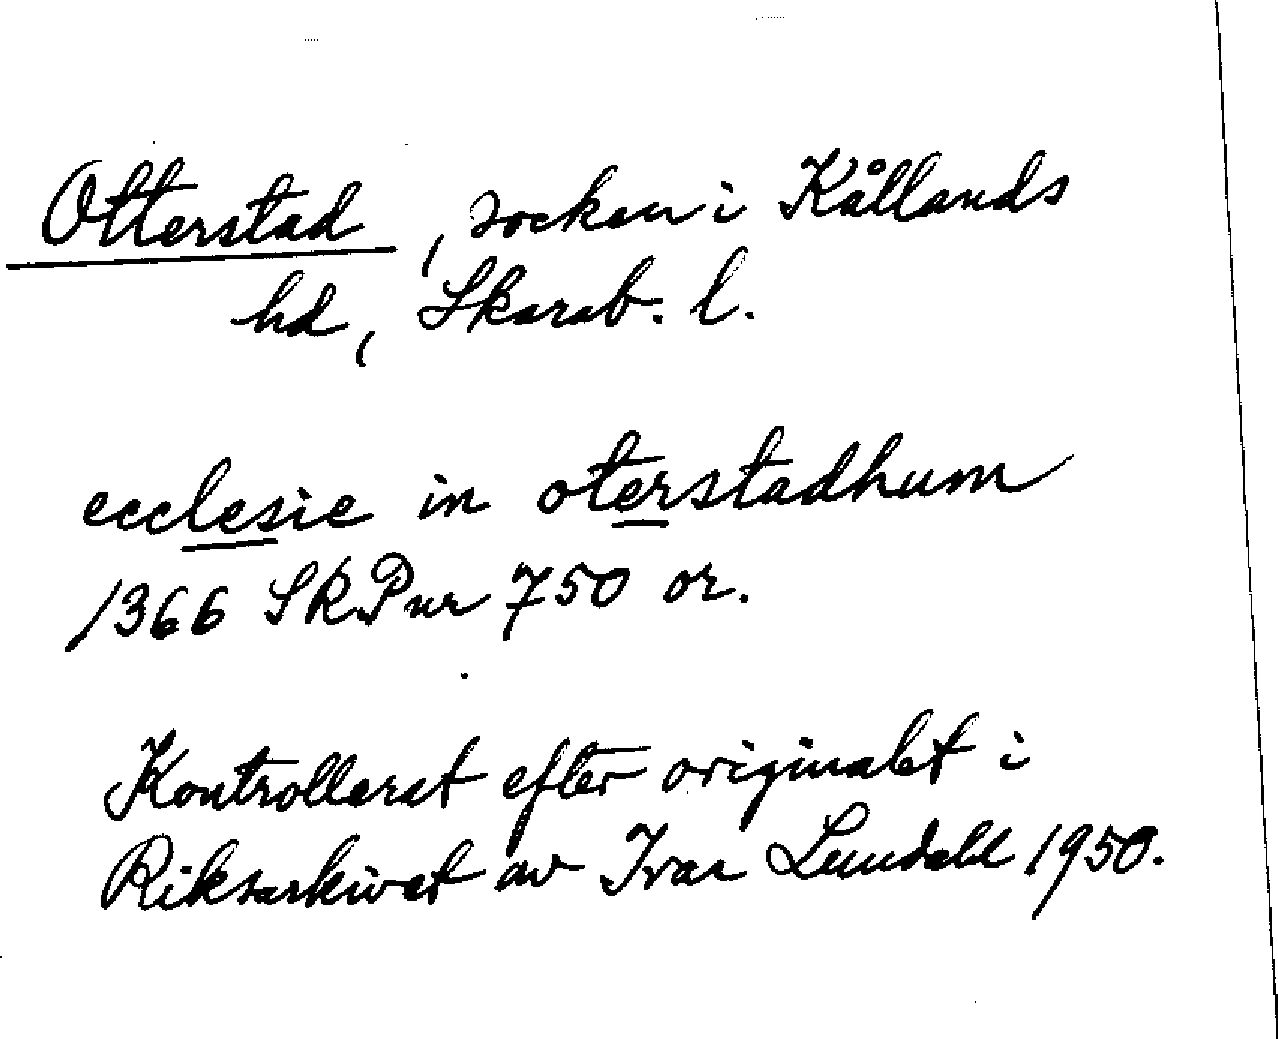 Otterstad, socken i Kållands
hd, Skarab. l.
ecclesie in oterstadhum
1366 SRPnr 750 or.
Kontrollerat efter originalet i
Riksarkivet av Ivar Lundahl 1950.